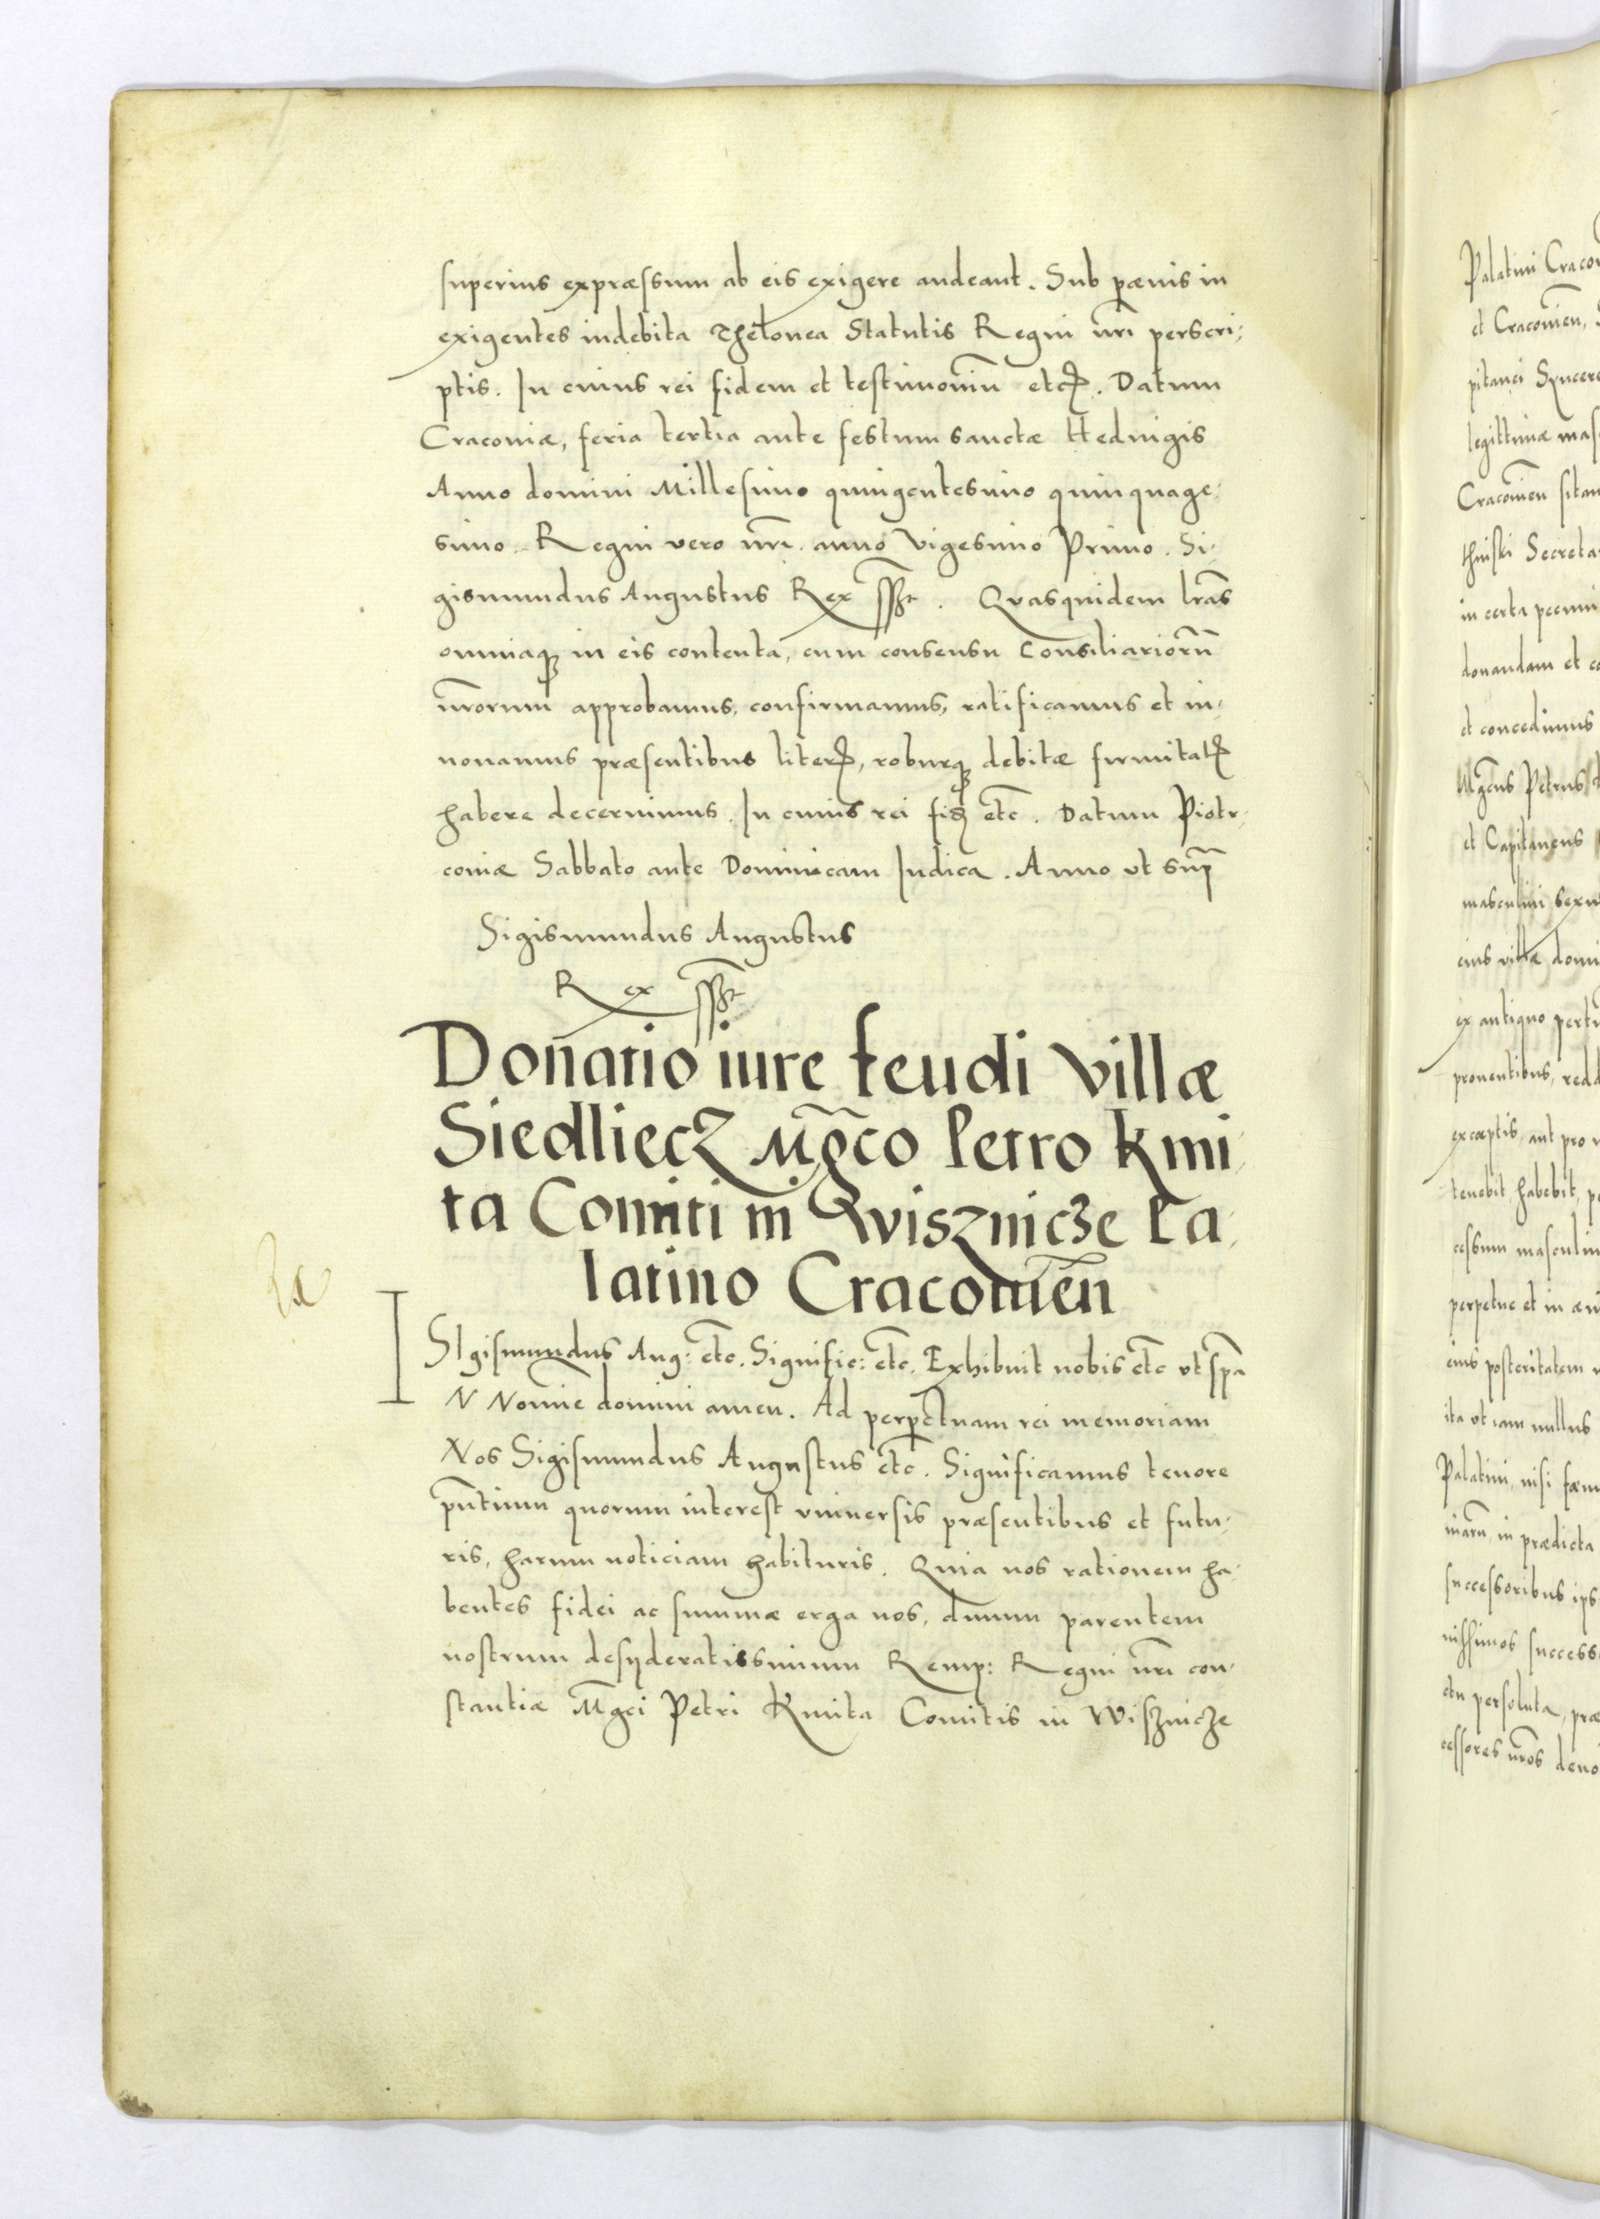 superius expræssum ab eis exigere audeant. Sub pænis in
exigentes indebita Thelonea Statutis Regni nr̄i perscri,
ptis. In cuius rei fidem et testimoniū etcꝭ. Datum
Cracoviæ, feria tertia ante festum sanctæ Hedvigis
Anno domini Millesimo quingentesimo quinquage,
simo. Regni vero nr̄i. anno Vigesimo Primo. Si,
gismundus Augustus Rex sst. Quasquidem lr̄as
omniaqꝫ in eis contenta, cum consensu Consiliariorū
nr̄orum approbamus, confirmamus, ratificamus et in,
novamus præsentibus literꝭ, roburqꝫ debitæ firmitatꝭ
habere decernimus. In cuius rei fiꝫ etc̄. Datum Piotr,
coviæ Sabbato ante Dominicam Iudica. Anno ut sup̄
Sigismundus Augustus
Rex sst
Donatio iure feudi villæ
Siedliecz M̄gco Petro Kmi,
ta Comiti in Wisznicze Pa,
latino Cracovien̄
SIgismundus Aug: etc̄. Signific: etc̄. Exhibuit nobis etc̄ ut spr̄a
IN Nomīe domini amen. Ad perpetuam rei memoriam
Nos Sigismundus Augustus etc̄. Significamus tenore
pn̄tium quorum interest universis præsentibus et futu,
ris, harum noticiam habituris. Quia nos rationem ha,
bentes fidei ac summæ erga nos, divum parentem
nostrum desyderatissimum Remp: Regni nr̄i con,
stantiæ M̄gci Petri Kmita Comitis in Wisznicze
Palatini
et Cracovien̄,
pitanei Syncere
legittimæ
Cracovien̄
Secreta
in certa
donandam et
et concedimus
Mgcus Petrus
et Capitaneus
masculini
eius villæ
ex antiquo
proventibus,
exceptis, aut pro
tenebit, habebit,
cessum
perpetue et in
eius posteritatem
ita ut iam nullus
Palatini, nisi
in prædicta
successoribus
nissimos
persoluta,
cessores nr̄os